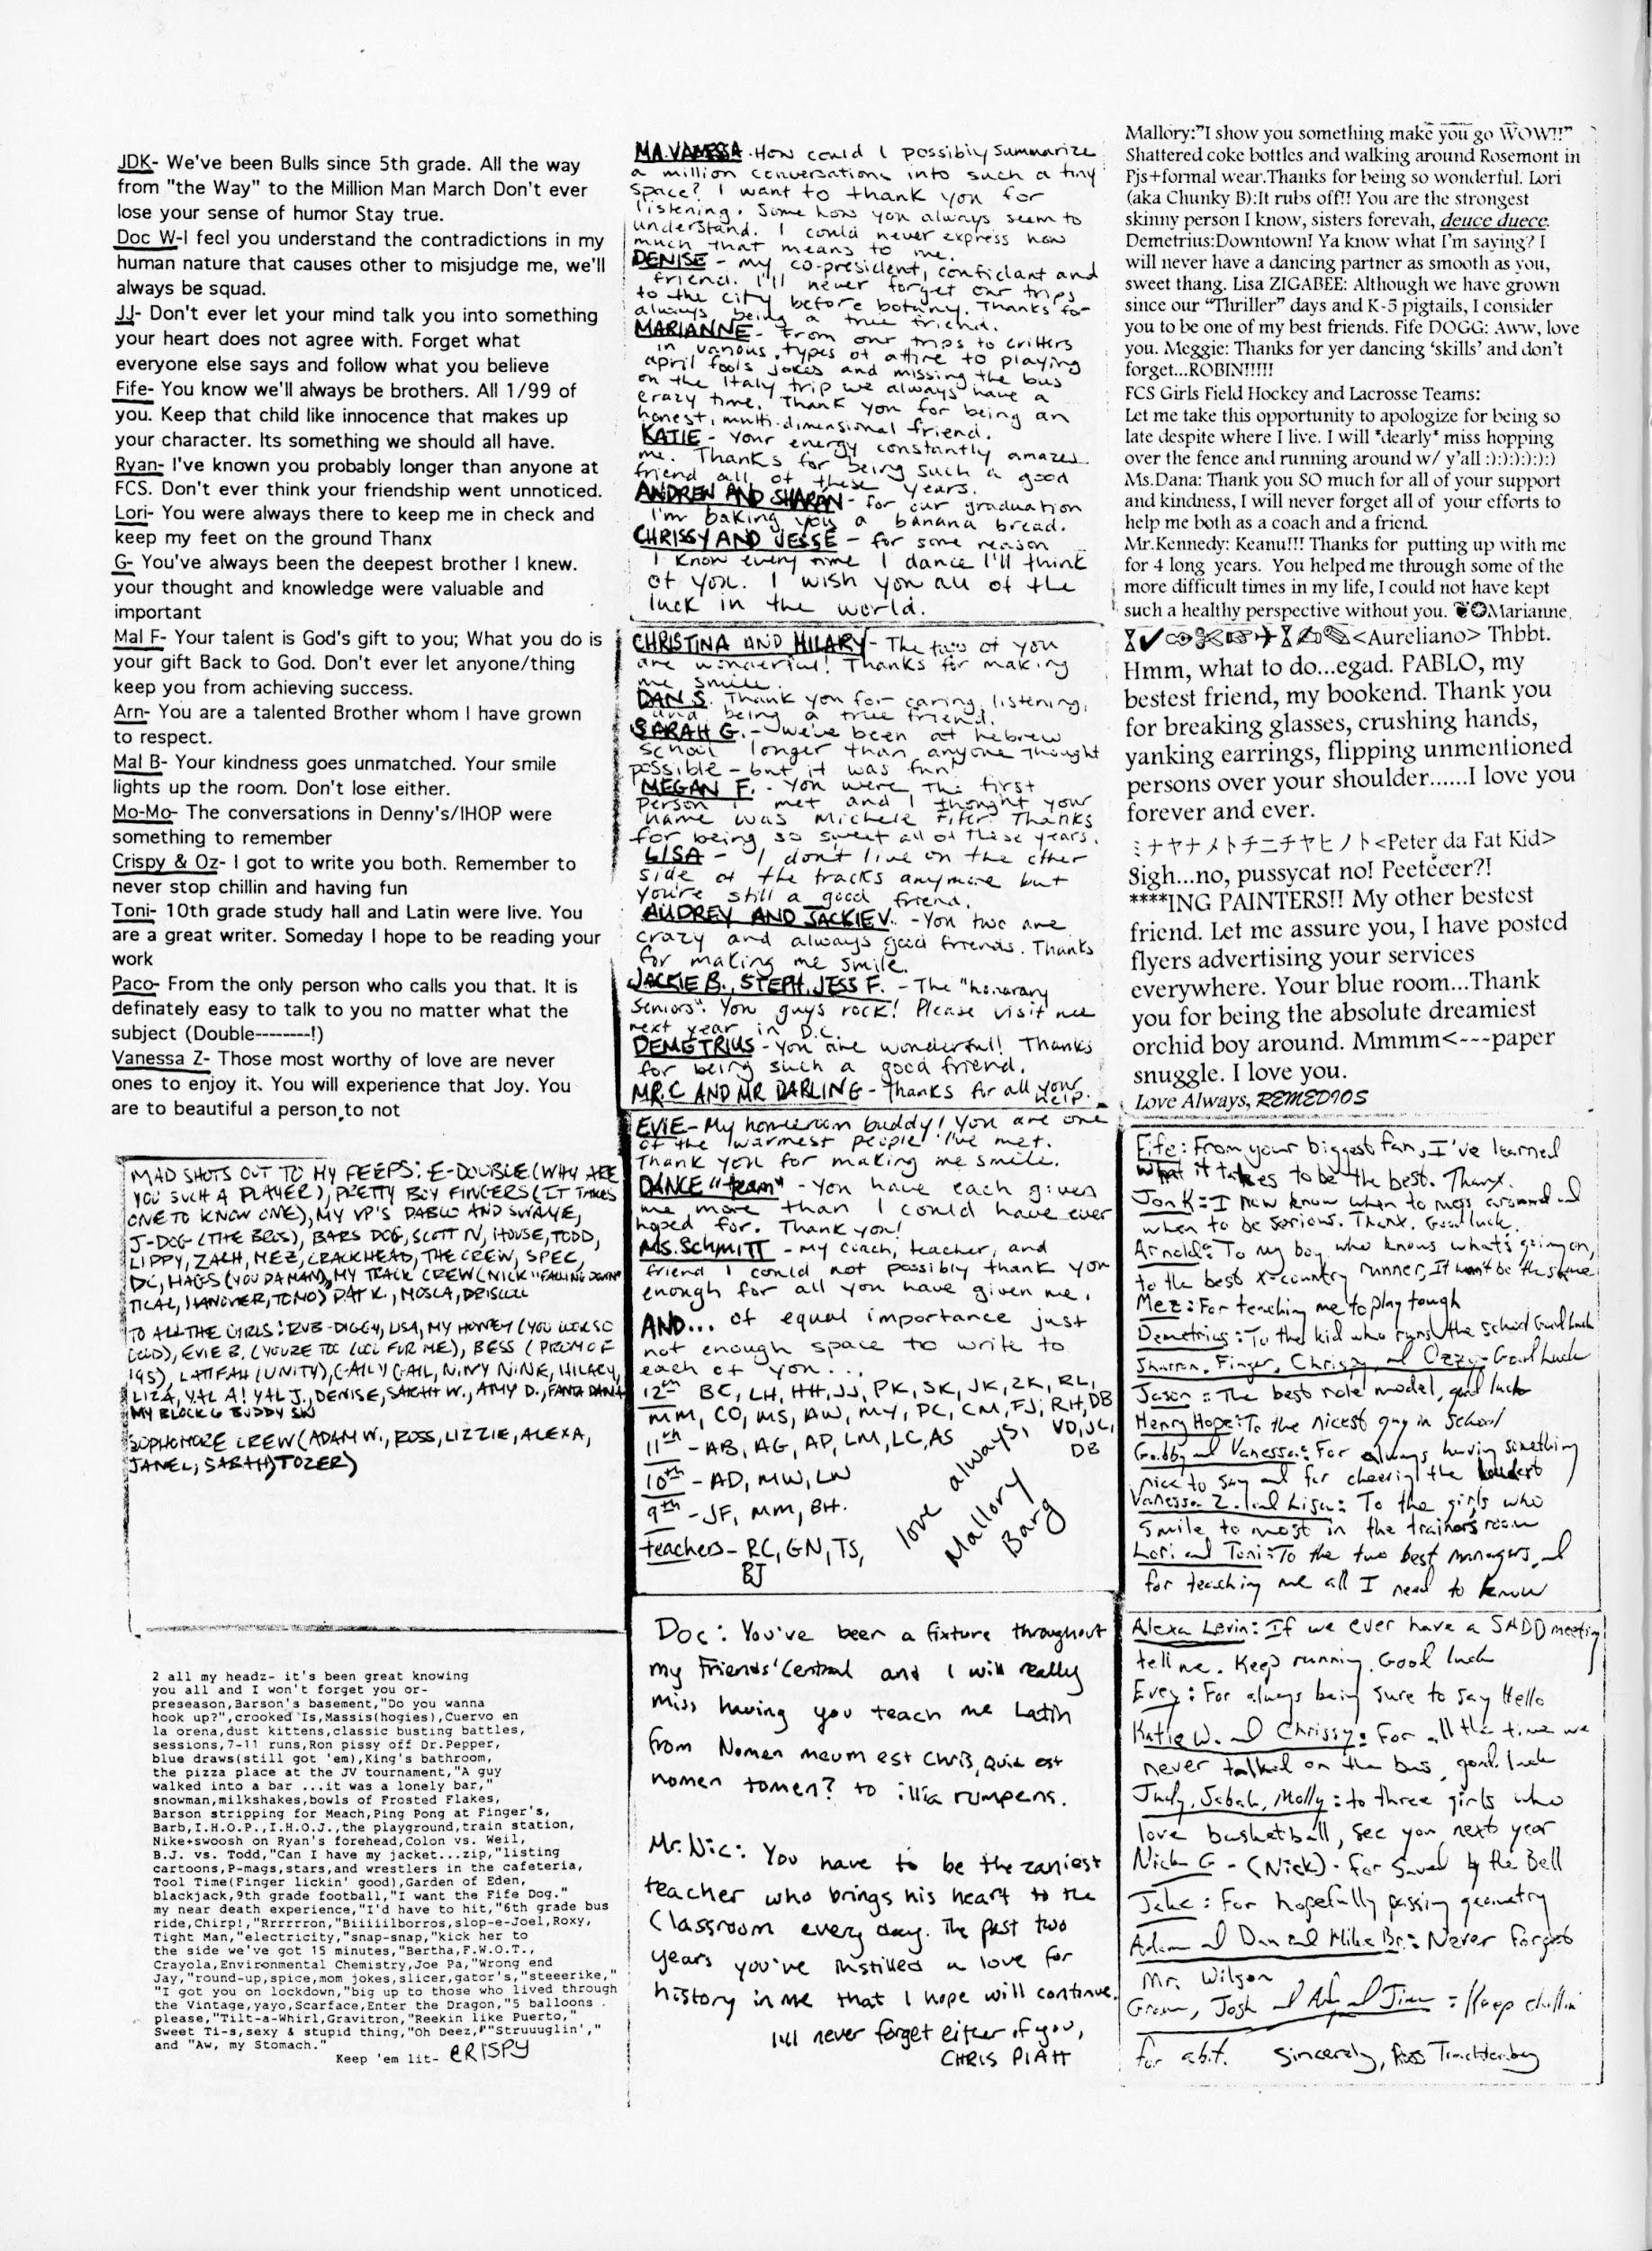 JDK- We've been Bulls since 5th grade. All the way
from "the Way" to the Million Man March Don't ever
lose your sense of humor Stay true.
Doc W-I feel you understand the contradictions in my
human nature that causes other to misjudge me, we'll
always be squad.
JJ- Don't ever let your mind talk you into something
your heart does not agree with. Forget what
everyone else says and follow what you believe
Fife- You know we'll always be brothers. All 1/99 of
you. Keep that child like innocence that makes up
your character. Its something we should all have.
Ryan- I've known you probably longer than anyone at
FCS. Don't ever think your friendship went unnoticed.
Lori- You were always there to keep me in check and
keep my feet on the ground Thanx
G- You've always been the deepest brother I knew.
your thought and knowledge were valuable and
important
Mal F- Your talent is God's gift to you; What you do is
your gift Back to God. Don't ever let anyone/thing
keep you from achieving success.
Arn- You are a talented Brother whom I have grown
to respect.
Mal B- Your kindness goes unmatched. Your smile
lights up the room. Don't lose either.
Mo-Mo- The conversations in Denny's/IHOP were
something to remember
Crispy & Oz- I got to write you both. Remember to
never stop chillin and having fun
Toni- 10th grade study hall and Latin were live. You
are a great writer. Someday I hope to be reading your
work
Paco- From the only person who calls you that. It is
definately easy to talk to you no matter what the
subject (Double--------!)
Vanessa Z- Those most worthy of love are never
ones to enjoy it. You will experience that Joy. You
are to beautiful a person to not
MAD SHOTS OUT TO MY PEEPS: E-DOUBLE (WHY ARE
YOU SUCH A PLAYER), PRETTY BOY FINGERS (IT TAKES
ONE TO KNOW ONE), MY VP'S PABLO AND SWAYE,
J-DOG (THE BROS), BARS DOG, SCOTT N, HOUSE, TODD,
LIPPY, ZACH, MEZ, CRACKHEAD, THE CREW, SPEC,
DC, HAGS (YOU DA MAN), MY TRACK CREW (NICK "FALLING DOWN"
TICAL, HANOVER, TOMO) PAT K., MOSCA, DRISCOLL
TO ALL THE GIRLS: RUB-DIGGY, LISA, MY HONEY (YOU LOOK SO
GOOD), EVIE B. (YOUZE TOO COOL FUR ME), BESS (PROM OF
'95), LATIFAH (UNITY), GAILY GAIL, NINY NINE, HILARY,
LIZA, YAL A! YAL J., DENISE, SARAH W., AMY D., FANTA DANA
MY BLOCK 6 BUDDY SW
SOPHOMORE CREW (ADAM W., ROSS, LIZZIE, ALEXA,
JANEL, SARAH, TOZER)
2 all my headz- it's been great knowing
you all and I won't forget you or-
preseason,Barson's basement,"Do you wanna
hook up?",crooked Is,Massis(hogies),Cuervo en
la orena,dust kittens,classic busting battles,
sessions,7-11 runs,Ron pissy off Dr.Pepper,
blue draws(still got 'em),King's bathroom,
the pizza place at the JV tournament,"A guy
walked into a bar ...it was a lonely bar,"
snowman,milkshakes,bowls of Frosted Flakes,
Barson stripping for Meach,Ping Pong at Finger's,
Barb,I.H.O.P.,I.H.O.J.,the playground,train station,
Nike+swoosh on Ryan's forehead,Colon vs. Weil,
B.J. vs. Todd,"Can I have my jacket...zip,"listing
cartoons,P-mags,stars,and wrestlers in the cafeteria,
Tool Time(Finger lickin' good),Garden of Eden,
blackjack,9th grade football,"I want the Fife Dog."
my near death experience,"I'd have to hit,"6th grade bus
ride,Chirp!,"Rrrrrron,"Biiiiilborros,slop-e-Joel,Roxy,
Tight Man,"electricity,"snap-snap,"kick her to
the side we've got 15 minutes,"Bertha,F.W.O.T.,
Crayola,Environmental Chemistry,Joe Pa,"Wrong end
Jay,"round-up,spice,mom jokes,slicer,gator's,"steeerike,"
"I got you on lockdown,"big up to those who lived through
the Vintage,yayo,Scarface,Enter the Dragon,"5 balloons
please,"Tilt-a-Whirl,Gravitron,"Reekin like Puerto,"
Sweet Ti-s,sexy & stupid thing,"Oh Deez,""Struuuglin',"
and "Aw, my Stomach."
Keep 'em lit- CRISPY
MA.VANESSA - How could I possibly summarize
a million conversations into such a tiny
space? I want to thank you for
listening. Some how you always seem to
understand. I could never express how
much that means to me.
DENISE - my co-president, confidant and
friend. I'll never forget our trips
to the city before botany. Thanks for
always being a true friend.
MARIANNE - From our trips to critters
in various types of attire to playing
april fools jokes and missing the bus
on the Italy trip we always have a
crazy time. Thank you for being an
honest, multi-dimensional friend.
KATIE - Your energy constantly amazes
me. Thanks for being such a good
friend all of these years.
ANDREW AND SHARON - for our graduation
I'm baking you a banana bread.
CHRISSY AND JESSE - for some reason
I know every time I dance I'll think
of you. I wish you all of the
luck in the world.
CHRISTINA AND HILARY - The two of you
are wonderful! Thanks for making
me smile.
DAN S. Thank you for caring, listening,
and being a true friend.
SARAH G. - We've been at hebrew
school longer than anyone thought
possible - but it was fun!
MEGAN F. - You were the first
person I met and I thought your
name was Michele Fifer. Thanks
for being so sweet all of these years.
LISA - I don't live on the other
side of the tracks anymore but
you're still a good friend.
AUDREY AND JACKIE V. - You two are
crazy and always good friends. Thanks
for making me smile.
JACKIE B., STEPH, JESS F. - The "honorary
seniors". You guys rock! Please visit me
next year in D.C.
DEMETRIUS - You are wonderful! Thanks
for being such a good friend.
MR.C AND MR DARLING - Thanks for all your
help.
EVIE - My homeroom buddy! You are one
of the warmest people I've met.
Thank you for making me smile.
DANCE "team" - You have each given
me more than I could have ever
hoped for. Thank you!
MS. SCHMITT - my coach, teacher, and
friend I could not possibly thank you
enough for all you have given me.
AND... of equal importance just
not enough space to write to
each of you...
12th BC, LH, HH, JJ, PK, SK, JK, ZK, RL,
MM, CO, MS, AW, MY, PC, CM, FJ, RH, DB
VD, JC,
DB
11th - AB, AG, AP, LM, LC, AS
10th - AD, MW, LW
9th - JF, MM, BH.
teachers - RC, GN, TS,
BJ
love always,
Mallory
Barg
Doc: You've been a fixture throughout
my Friends' Central and I will really
miss having you teach me Latin
from Nomen meum est Chris, Quid est
nomen tomen? to illia rumpens.
Mr. Nic: You have to be the zaniest
teacher who brings his heart to the
Classroom every day. The past two
years you've instilled a love for
history in me that I hope will continue.
I will never forget either of you,
CHRIS PIATT
Mallory:"I show you something make you go WOW!!"
Shattered coke bottles and walking around Rosemont in
Pjs+formal wear.Thanks for being so wonderful. Lori
(aka Chunky B):It rubs off!! You are the strongest
skinny person I know, sisters forevah, deuce duece.
Demetrius:Downtown! Ya know what I'm saying? I
will never have a dancing partner as smooth as you,
sweet thang. Lisa ZIGABEE: Although we have grown
since our "Thriller" days and K-5 pigtails, I consider
you to be one of my best friends. Fife DOGG: Aww, love
you. Meggie: Thanks for yer dancing 'skills' and don't
forget...ROBIN!!!!!
FCS Girls Field Hockey and Lacrosse Teams:
Let me take this opportunity to apologize for being so
late despite where I live. I will *dearly* miss hopping
over the fence and running around w/ y'all :):):):):):)
Ms.Dana: Thank you SO much for all of your support
and kindness, I will never forget all of your efforts to
help me both as a coach and a friend.
Mr.Kennedy: Keanu!!! Thanks for putting up with me
for 4 long years. You helped me through some of the
more difficult times in my life, I could not have kept
such a healthy perspective without you. Marianne
<Aureliano> Thbbt.
Hmm, what to do...egad. PABLO, my
bestest friend, my bookend. Thank you
for breaking glasses, crushing hands,
yanking earrings, flipping unmentioned
persons over your shoulder......I love you
forever and ever.
ミナヤナメトチニチヤヒノト<Peter da Fat Kid>
Sigh...no, pussycat no! Peeteeer?!
****ING PAINTERS!! My other bestest
friend. Let me assure you, I have posted
flyers advertising your services
everywhere. Your blue room...Thank
you for being the absolute dreamiest
orchid boy around. Mmmm<---paper
snuggle. I love you.
Love Always, REMEDIOS
Fife: From your biggest fan, I've learned
what it takes to be the best. Thanx.
Jon K: I now know when to mess around and
when to be serious. Thanx. Good luck.
Arnold: To my boy who knows what's going on,
to the best x-country runner, It won't be the same
Mez: For teaching me to play tough
Demetrius: To the kid who runs the school Good luck
Sharron, Finger, Chrispy, and Ozzy - Good luck
Jason: The best role model, good luck
Henry Hope: To the nicest guy in School
Gabby and Vanessa: For always having something
nice to say and for cheering the loudest
Vanessa Z. and Lisa: To the girls who
smile to most in the trainers room
Lori and Toni: To the two best managers, and
for teaching me all I need to know
Alexa Levin: If we ever have a SADD meeting
tell me. Keep running. Good luck
Evey: For always being sure to say Hello
Katie W. and Chrissy: For all the time we
never talked on the bus, good luck
Judy, Sabah, Molly: to three girls who
love basketball, see you next year
Nick G - (Nick) - for Saved by the Bell
Jake: For hopefully passing geometry
Adam and Dan and Mike Br.: Never forget
Mr. Wilson
Josh and and : Keep chillin
for a bit. Sincerely, Ross Trachtenberg